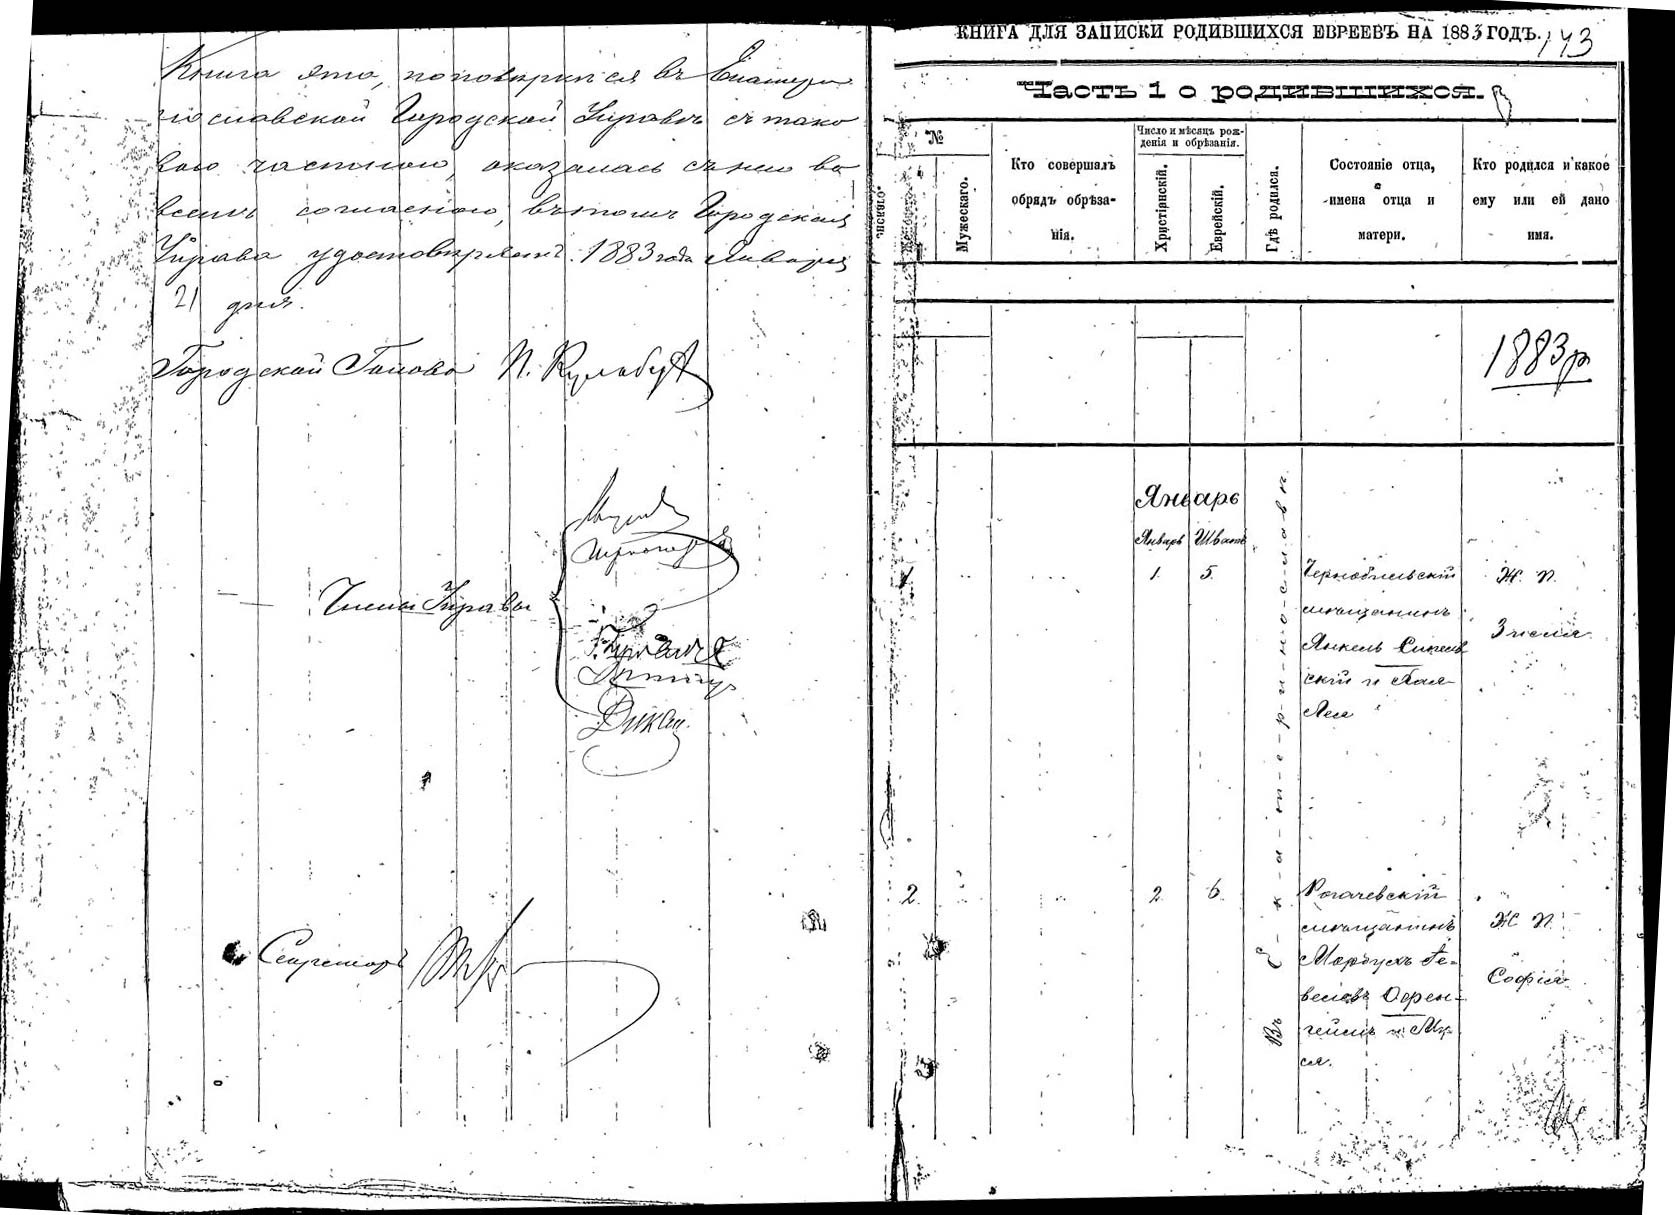 Книга эта, по поверкѣ ея въ Екатери
нославской Городской Управѣ съ тако
вою частною, оказалась съ нею во
всемъ согласною, въ томъ Городская
Управа удостовѣряетъ. 1883 года Января
21 дня.
Городской Голова П.
Члены Управы
Дикаш
Секретарь
КНИГА ДЛЯ ЗАПИСКИ РОДИВШИХСЯ ЕВРЕЕВЪ НА 1883 ГОДЪ.
143
Часть 1 о родившихся.
№
Женскаго.
Мужескаго.
Кто совершалъ
обрядъ обрѣза-
нія.
Число и мѣсяцъ рож-
денія и обрѣзанія.
Христіянскій.
Еврейскій.
Гдѣ родился.
Состояніе отца,
имена отца и
матери.
Кто родился и какое
ему или ей дано
имя.
1883 г.
Январь
Январь Шватъ
1 1. 5. Чернобыльскій Ж. П.
мѣщанинъ
Янкель
скій и Хая Злата
Лея
Въ Е-к-а-т-е-р-и-н-о-с-л-а-в-ѣ
2. 2 6. Рогачевскій
мѣщанинъ Ж П.
Мордухъ Ге-
велевъ Офен- Софія
геймъ и Му-
ся.